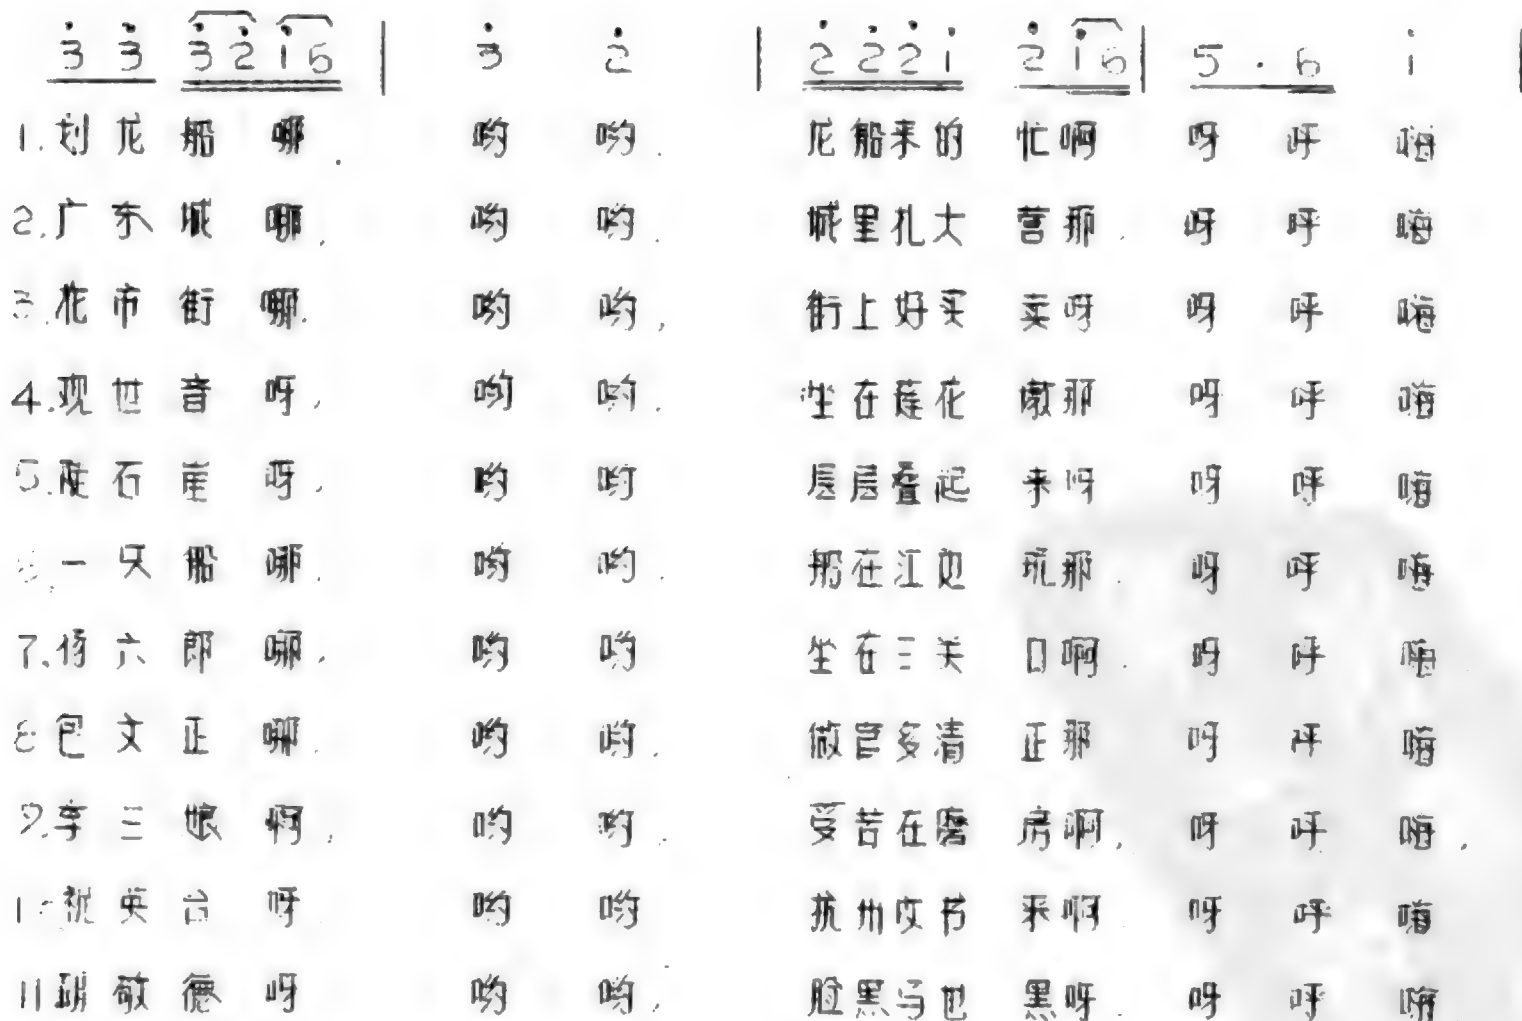 3 3 3 2 1 6 | 3 2 | 2 2 2 1 2 1 6 | 5 . 6 1 |
1. 划龙船哪. 哟哟. 龙船来的忙啊 呀呼嗨
2. 广东城哪, 哟哟. 城里扎大营那. 呀呼嗨
3. 花市街哪. 哟哟, 街上好买卖呀 呀呼嗨
4. 观世音呀, 哟哟. 坐在莲花墩那 呀呼嗨
5. 石崖呀, 哟哟 层层叠起来呀 呀呼嗨
6. 一只船哪. 哟哟. 船在江边玩那. 呀呼嗨
7. 杨六郎哪, 哟哟 坐在三关口啊. 呀呼嗨
8 包文正哪. 哟哟. 做官多清正那 呀呼嗨
9. 李三娘啊, 哟哟. 受苦在磨房啊, 呀呼嗨,
10 祝英台呀 哟哟 杭州攻书来啊 呀呼嗨
11 胡敬德呀 哟哟, 脸黑马也黑呀. 呀呼嗨